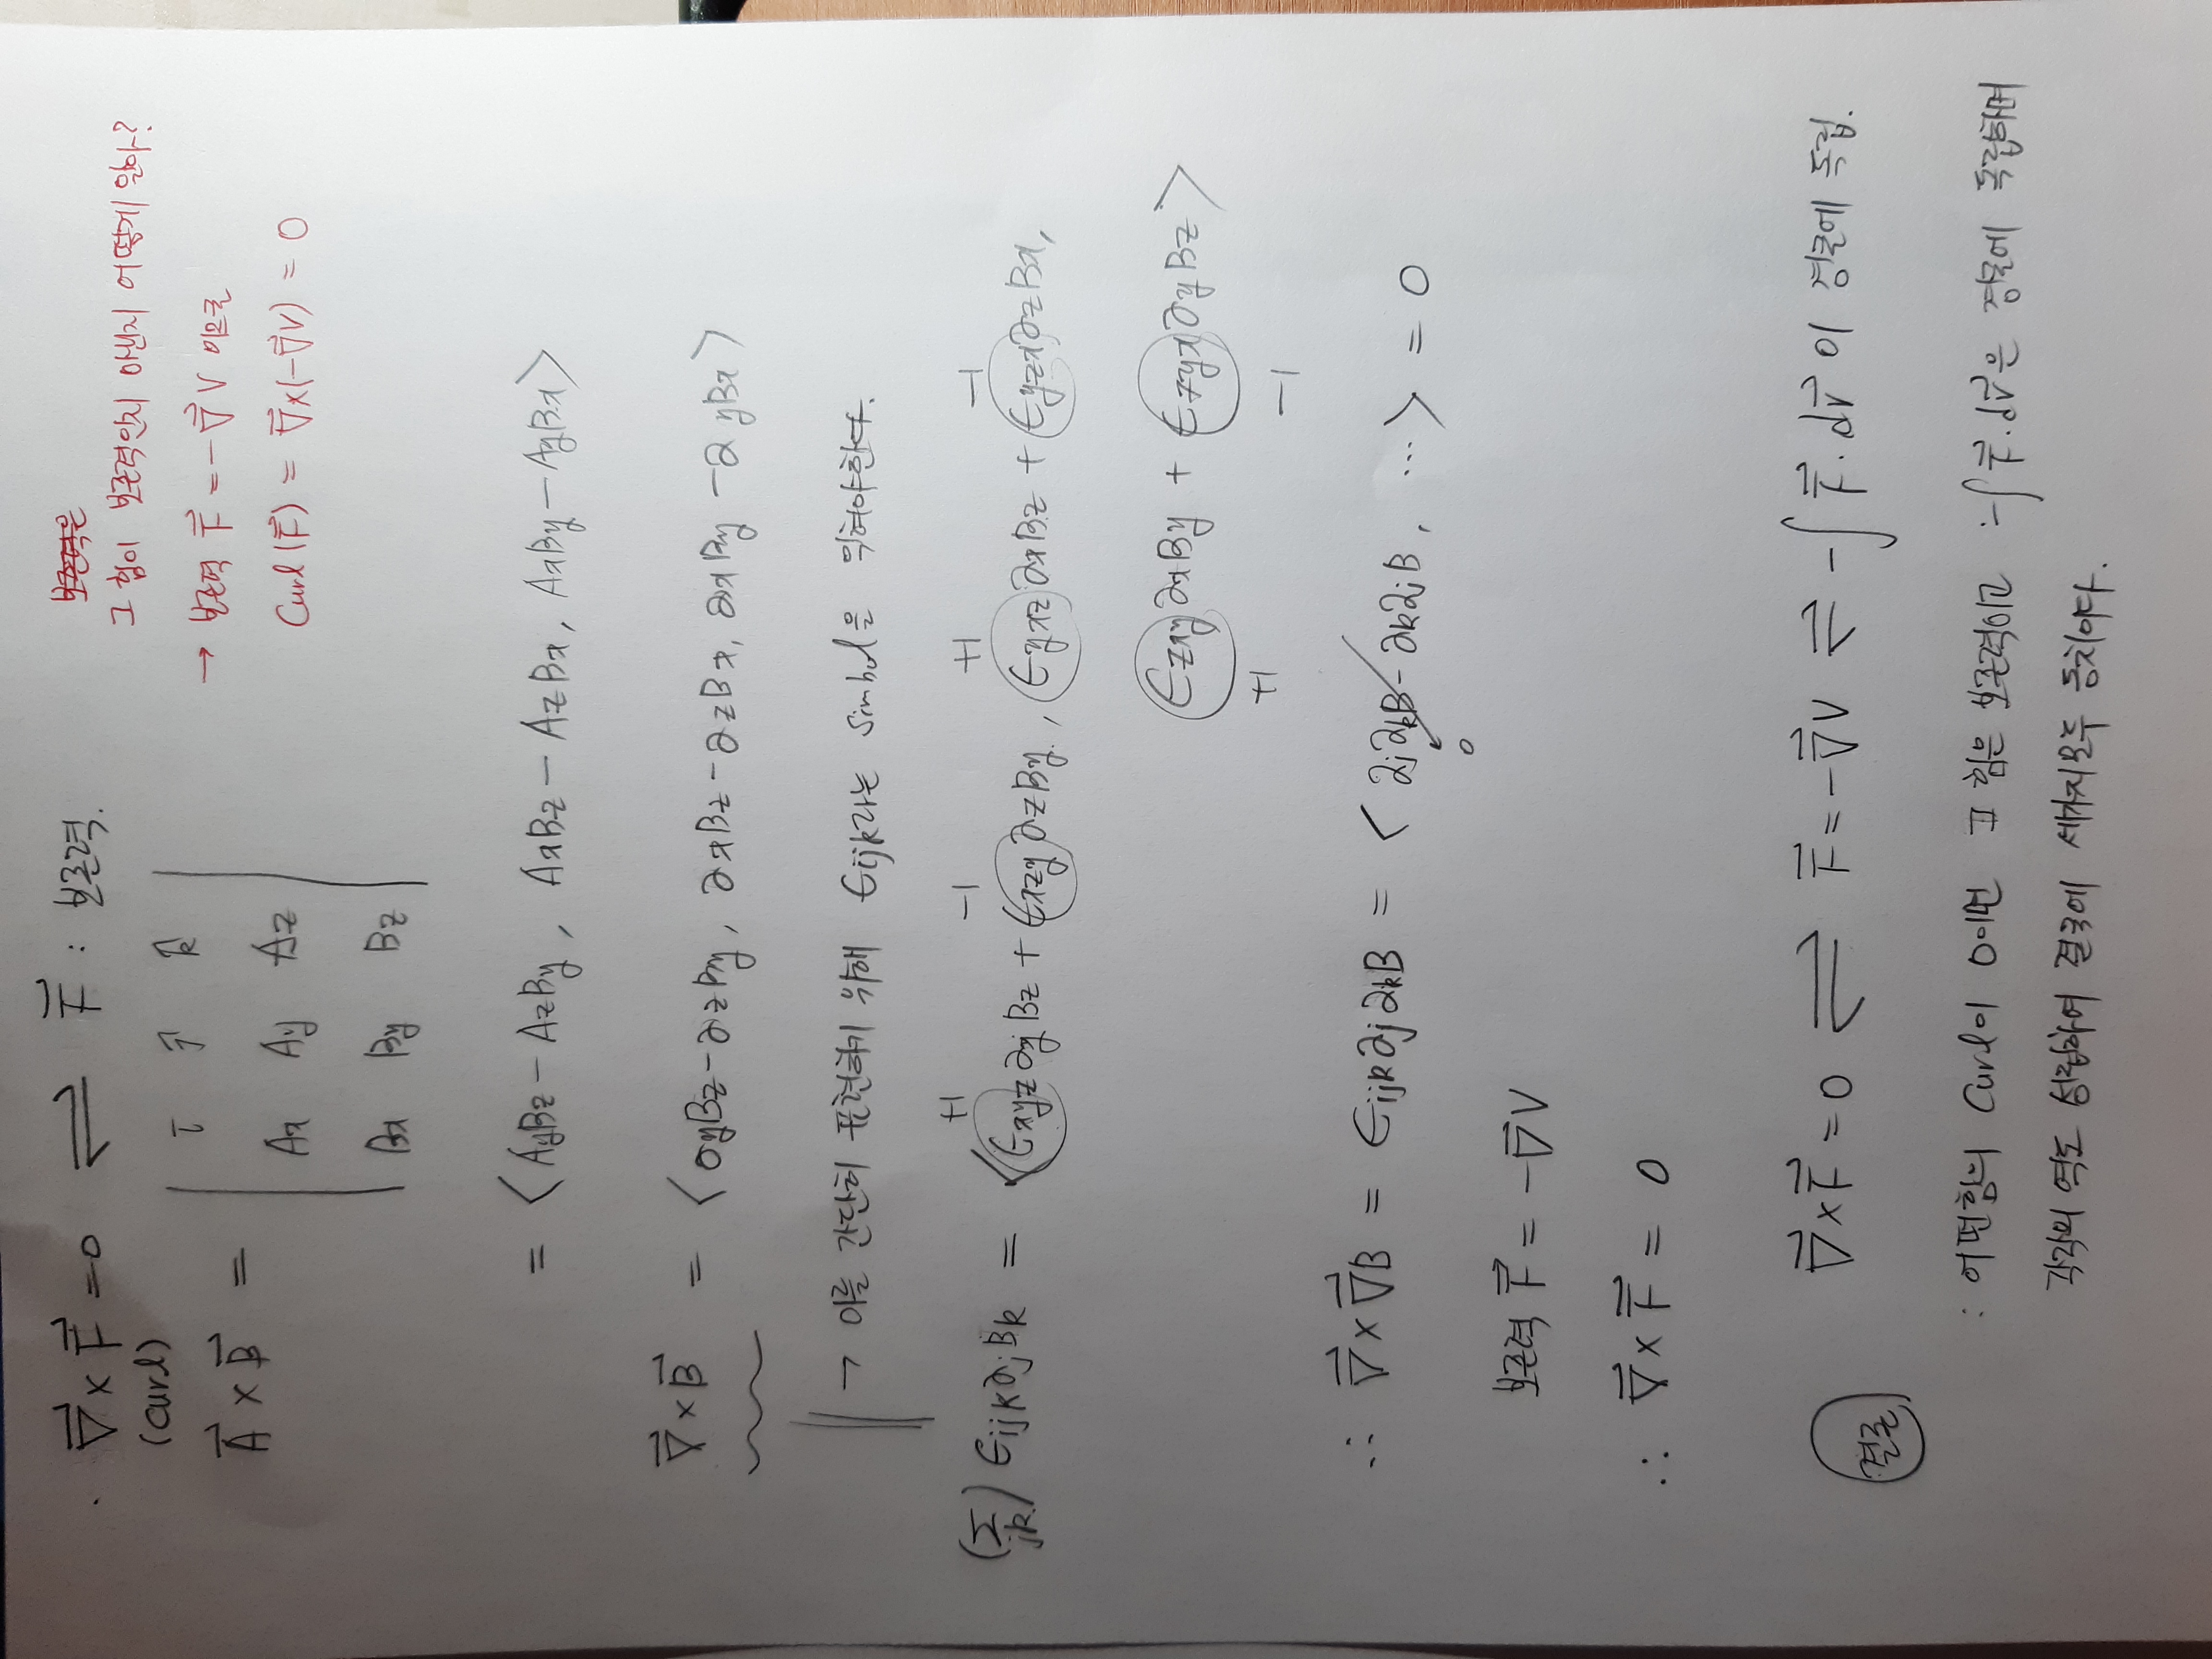 보존력은
그 힘이 보존력인지 아닌지 어떻게 알아?
→ 보존력 F⃗ = -∇⃗V 이므로
Curl(F⃗) = ∇⃗x(-∇⃗V) = 0
· ∇⃗ x F⃗ = 0 ⇌ F⃗ : 보존력.
(curl)
A⃗ x B⃗ = | i j k |
| Ax Ay Az |
| Bx By Bz |
= <AyBz - AzBy, AxBz - AzBx, AxBy - AyBx>
∇⃗ x B⃗ = <∂yBz - ∂zBy, ∂xBz - ∂zBx, ∂xBy - ∂yBx>
→ 이를 간단히 표현하기 위해 ϵijk라는 Simbol을 익혀야한다.
+1 -1 +1 -1
(Σjk) ϵijk∂jBk = <ϵxyz∂yBz + ϵxzy∂zBy, ϵyxz∂xBz + ϵyzx∂zBx,
ϵzxy∂xBy + ϵzyx∂yBz>
+1 -1
∴ ∇⃗ x ∇⃗B = ϵijk∂j∂kB = <∂j∂kB - ∂k∂jB, ...> = 0
0
보존력 F⃗ = -∇⃗V
∴ ∇⃗ x F⃗ = 0
결론 ∇⃗ x F⃗ = 0 ⇌ F⃗ = -∇⃗V ⇌ -∫F⃗·dr⃗ 이 경로에 독립.
: 어떤힘의 Curl이 0이면 그 힘은 보존력이고 : -∫F⃗·dr⃗은 경로에 독립하며
각각의 역도 성립하여 결국에 세가지모두 동치이다.